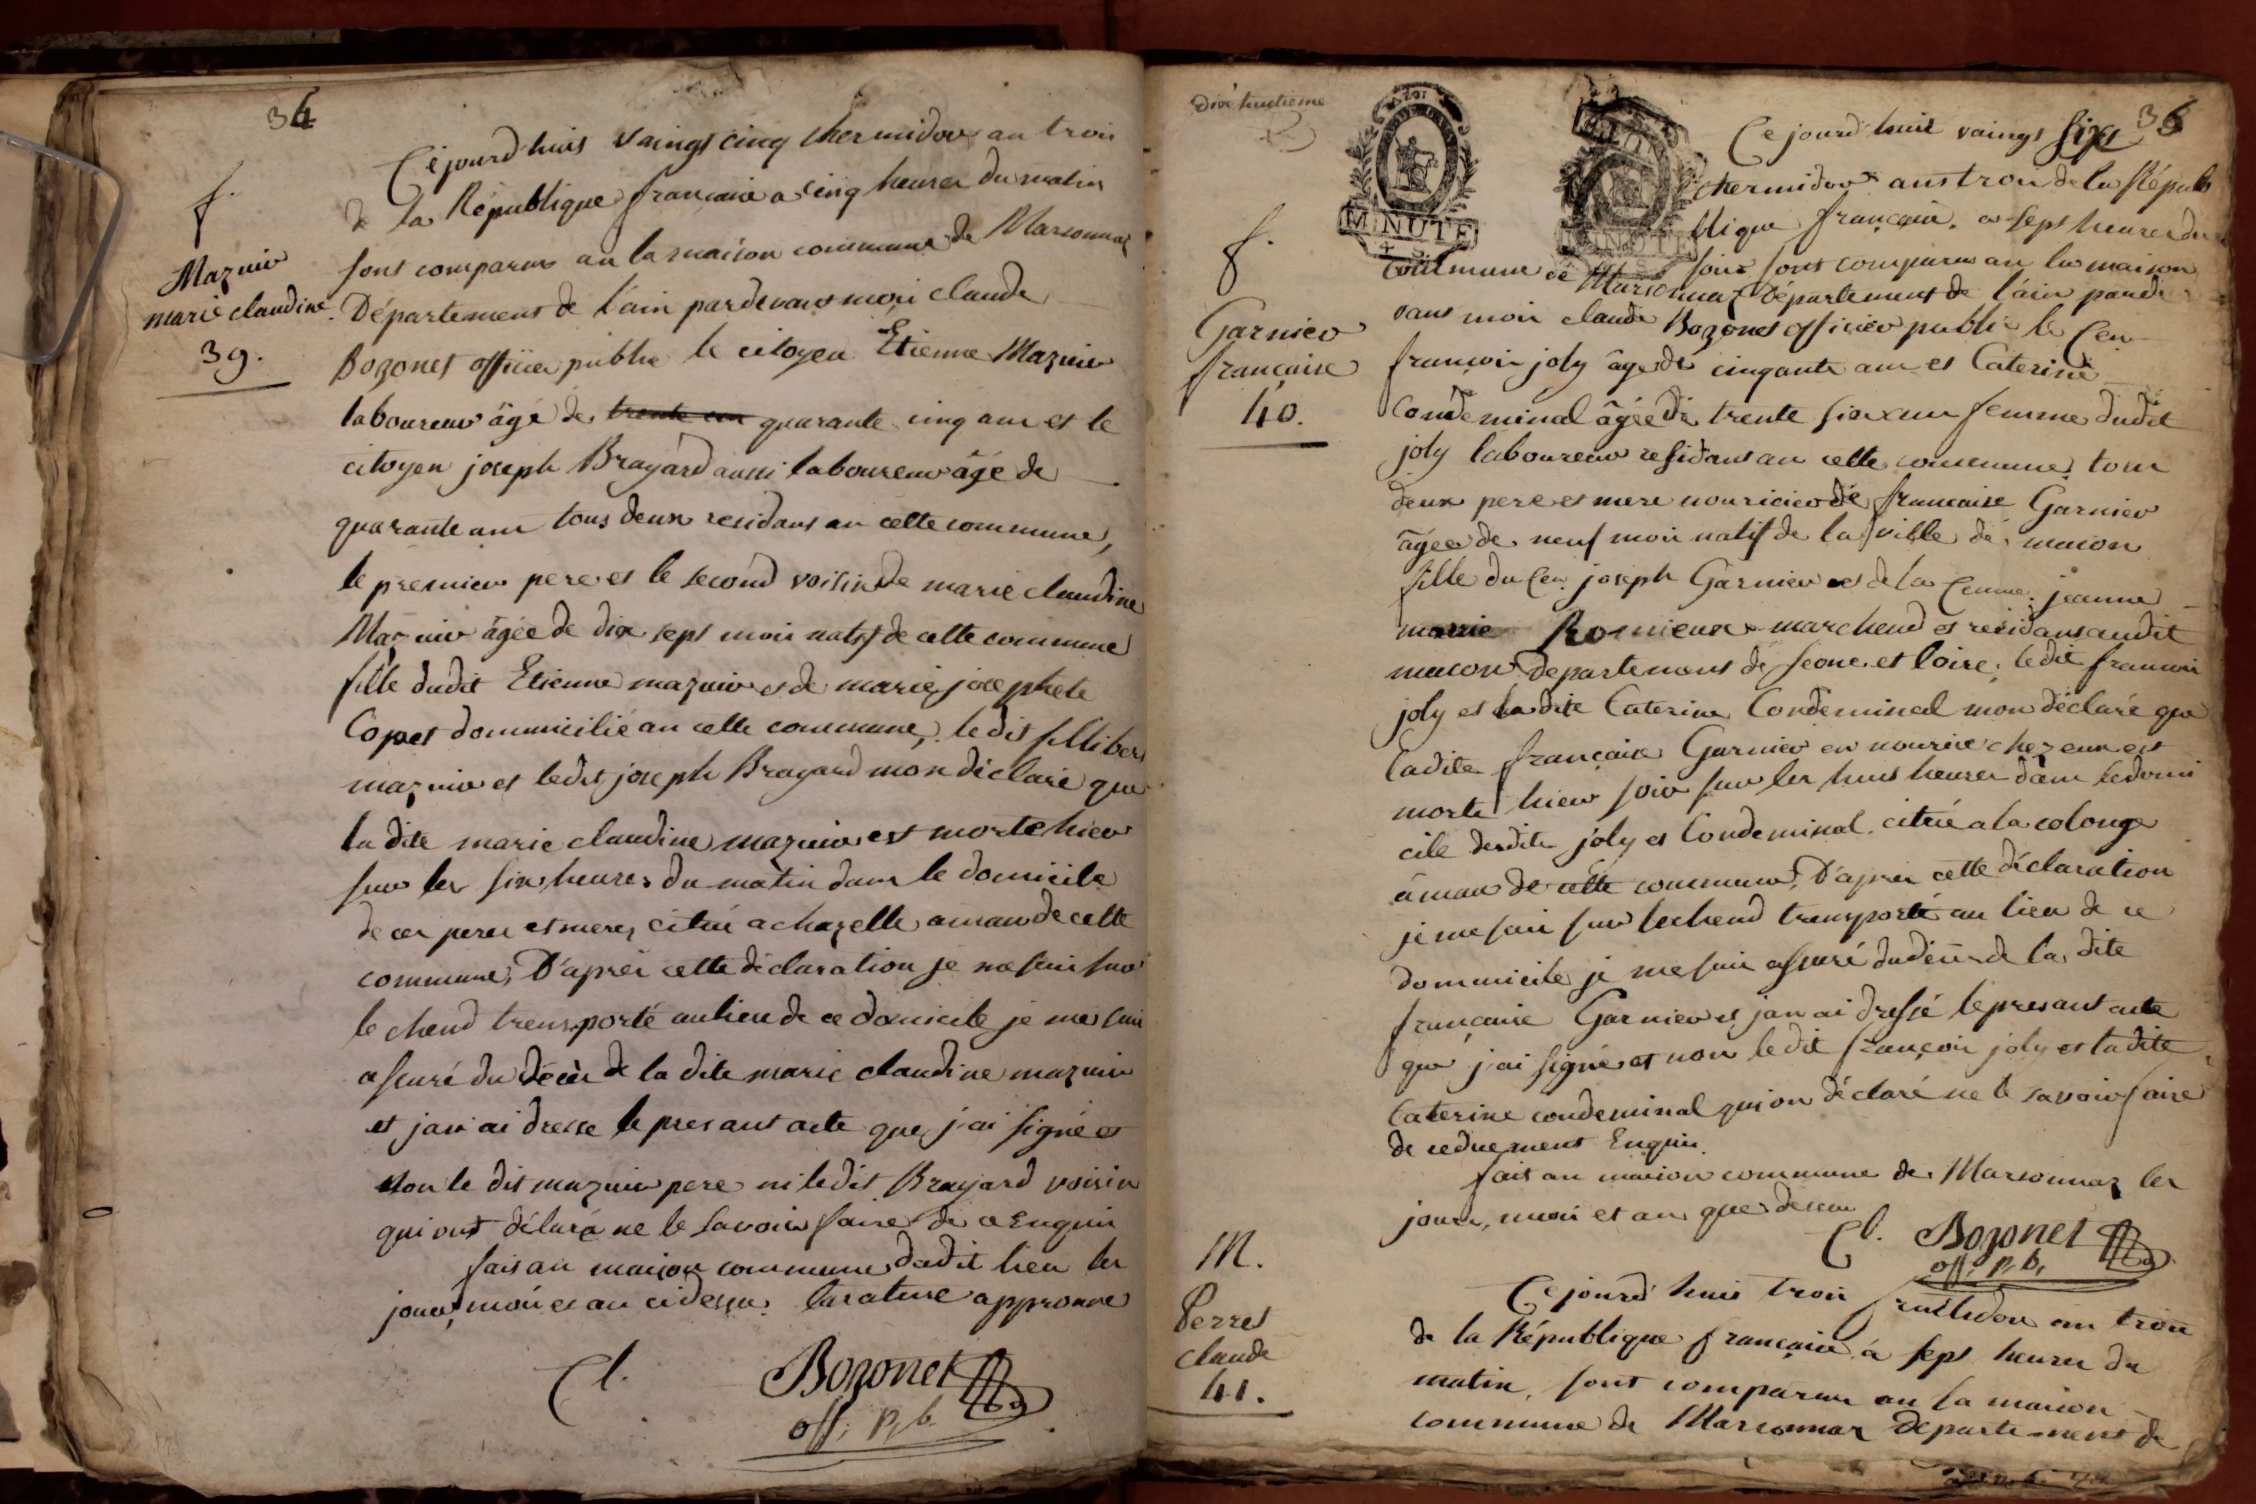 34
f.
Mazuir
marie claudine
39.
Cejourd'huis vaingt cinq thermidor an trois
de la République francaise a cinq heures du matin
sont comparus an la maison commune de Marsonnaz
Département de l'ain pardevant moi claude
Bozonet officier public le citoyen Etienne Mazuir
laboureur âgé de trente cin quarante cinq ans et le
citoyen joseph Brayard aussi laboureur âgé de
quarante ans tous deux residans an cette commune,
le premier pere et le second voisin de marie claudine
Mazuir âgée de dix sept mois natif de cette commune
fille dudit Etienne mazuir et de marie josephete
Copet dommicilié an cette commune, le dit filliber
mazuir et ledit joseph Brayard mon déclaré que
la dite marie claudine mazuir est morte hier
sur les six heures du matin dans le domicile
de ces peres et meres citué a chazelle amau de cette
commune, D'après cette déclaration je me suis sur
le chend trensporté au lieu de ce domicile je me suis
assuré du décès de la dite marie claudine mazuir
et jan ai dresse le presant acte que j'ai signé et
non le dit mazuir pere ni ledit Brayard voisin
qui ont déclaré ne le savoir faire de ce Enquis
fait an maison commune dudit lieu les
jours, mois et an cidessus. la rature approuvé
Cl. Bozonet
off. p. b.
Dixe huitieme
MINUTE
36
f.
Garnier
francaise
40.
Ce jourd'huit vaingt sixt
thermidor ans trois de la Répub
blique françaice, a sept heures du
soir sont comparus an la maison
commune de Marsonnaz Département de l'ain parde
vant moi claude Bozonet officier public le Cen
francois joly âgé de cinqante ans et Caterine
Condeminal âgée de trente six ans femme dudit
joly laboureur residant an cette commune, tous
deux pere et mere nouricier de francaise Garnier
âgée de neuf mois natif de la ville de macon
fille du Cen. joseph Garnier et de la Cenne. jeanne
marie Romieux marchend et residans audit
macon, departemant de seone et loire, ledit francois
joly et la dite Caterine Condeminal mon déclaré que
ladite françaice Garnier en nourice chez eux est
morte hier soir sur les huit heures dans le domi
cile desdits joly et Condeminal, citué a la colonge
amau de cette commune, D'après cette déclaration
je me suis sur lechend transporté au lieu de ce
dommicile je me suis assuré du décès de la dite
françaice Garnier et jan ai dressé le presant acte
que j'ai signé et non ledit françois joly et la dite
Caterine condeminal qui on déclaré ne le savoir faire
de ceduement Enquis.
fait an maison commune de Marsonnaz les
jours, mois et an que dessus
Cl. Bozonet
off. p. b.
M.
Perret
claude
41.
Cejourd'huis trois fructidor an trois
de la République françaice à sept heures du
matin, sont comparus an la maison
commune de Marsonnaz Departement de